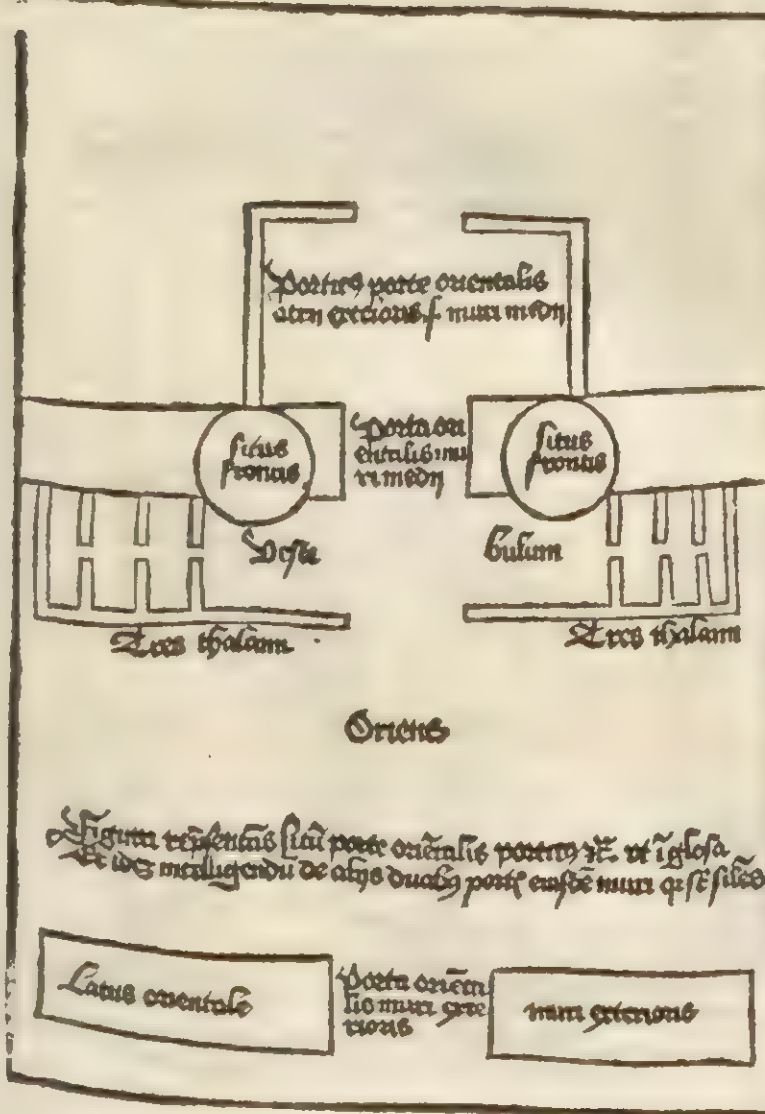 Portic9 porte orientalis
atrij exterioris ſ muri medij
situs
frontis
Porta ori
entalis mu
ri medij
situs
frontis
Vesti
bulum
Tres thalami
Tres thalami
Oriens
Figura rep̄sentās sitū porte oriētalis portic9 ⁊c̄. vt ī glosa
Et idē intelligendū de alijs duab9 port' eiusdē muri q̄ sūt siles
Latus orientale
Porta oriēta
lis muri exte
rioris
muri exterioris